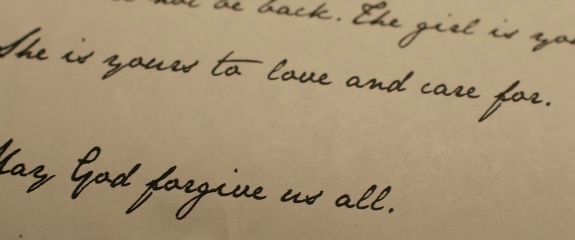 not be back. The girl is
She is yours to love and care for.
May God forgive us all.